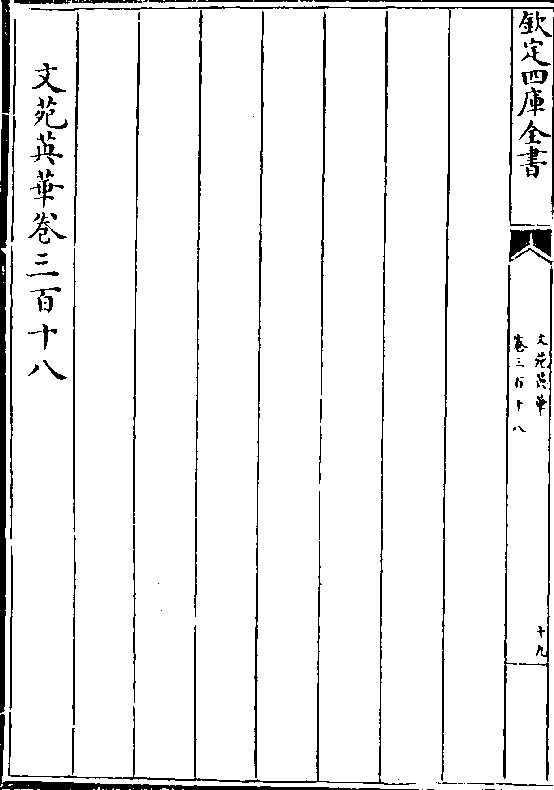 欽定四庫全書
文苑英華
卷三百十八
十九
文苑英華卷三百十八